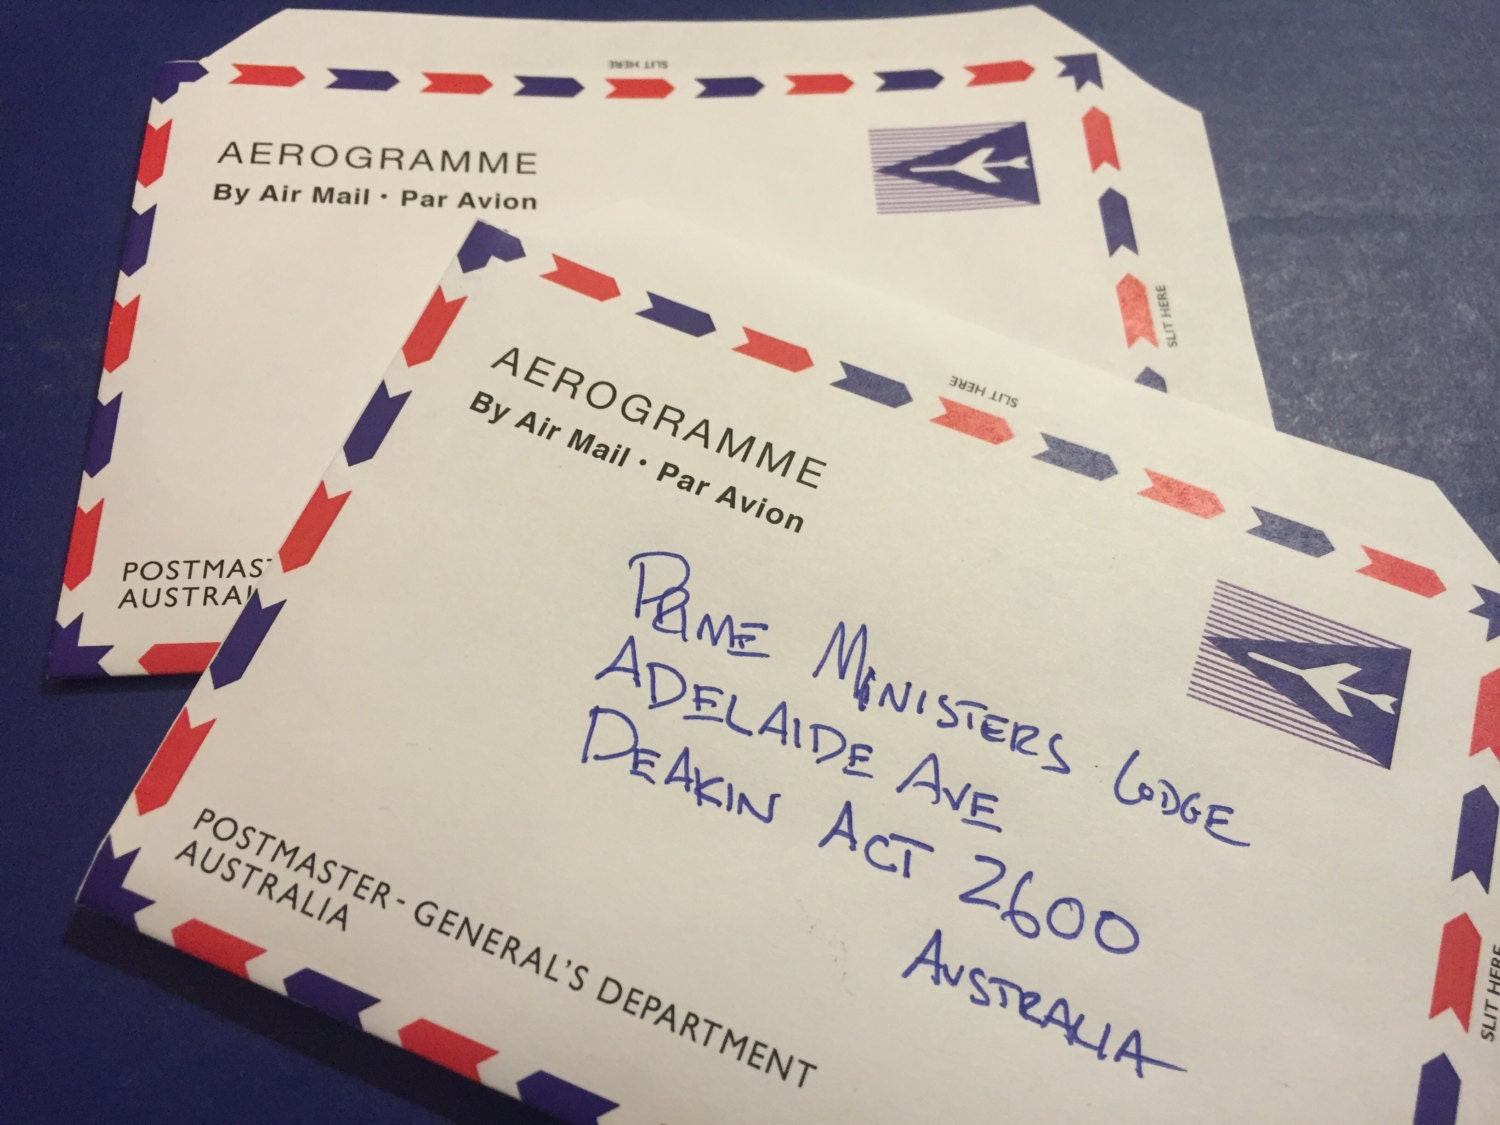 SLIT HERE
AEROGRAMME
By Air Mail · Par Avion
SLIT HERE
POSTMAS
AUSTRAL
SLIT HERE
AEROGRAMME
By Air Mail · Par Avion
PRIME MINISTERS LODGE
ADELAIDE AVE
DEAKIN ACT 2600
AUSTRALIA
POSTMASTER-GENERAL'S DEPARTMENT
AUSTRALIA
SLIT HERE